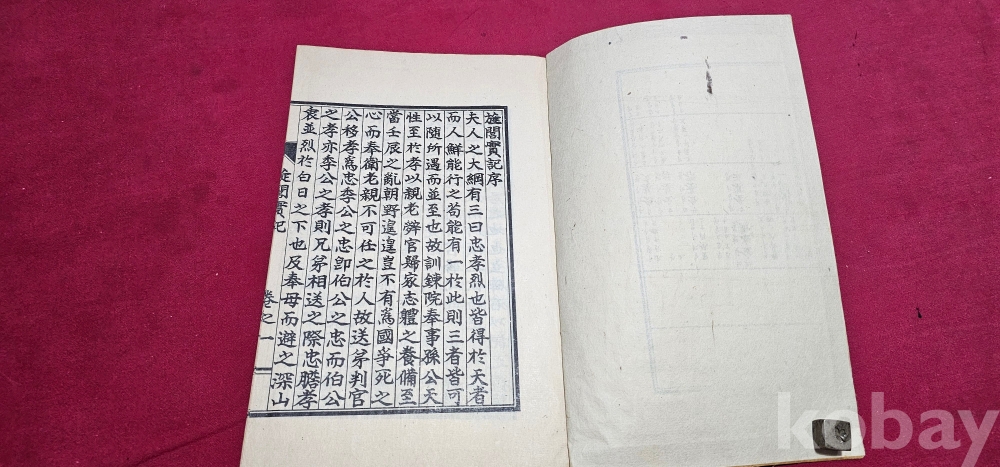 旌閭實記序
夫人之大綱有三曰忠孝烈也皆得於天者
而人鮮能行之苟能有一於此則三者皆可
以随所遇而並至也故訓鍊院奉事孫公天
性至於孝以親老辭官歸家志軆之養備至
當壬辰之亂朝野遑遑豈不有爲國爭死之
心而奉衛老親不可任之於人故送弟判官
公移孝爲忠季公之忠卽伯公之忠而伯公
之孝亦季公之孝則兄弟相送之際忠膽孝
衷並烈於白日之下也及奉母而避之深山
旌閭實記 卷之一
kobay